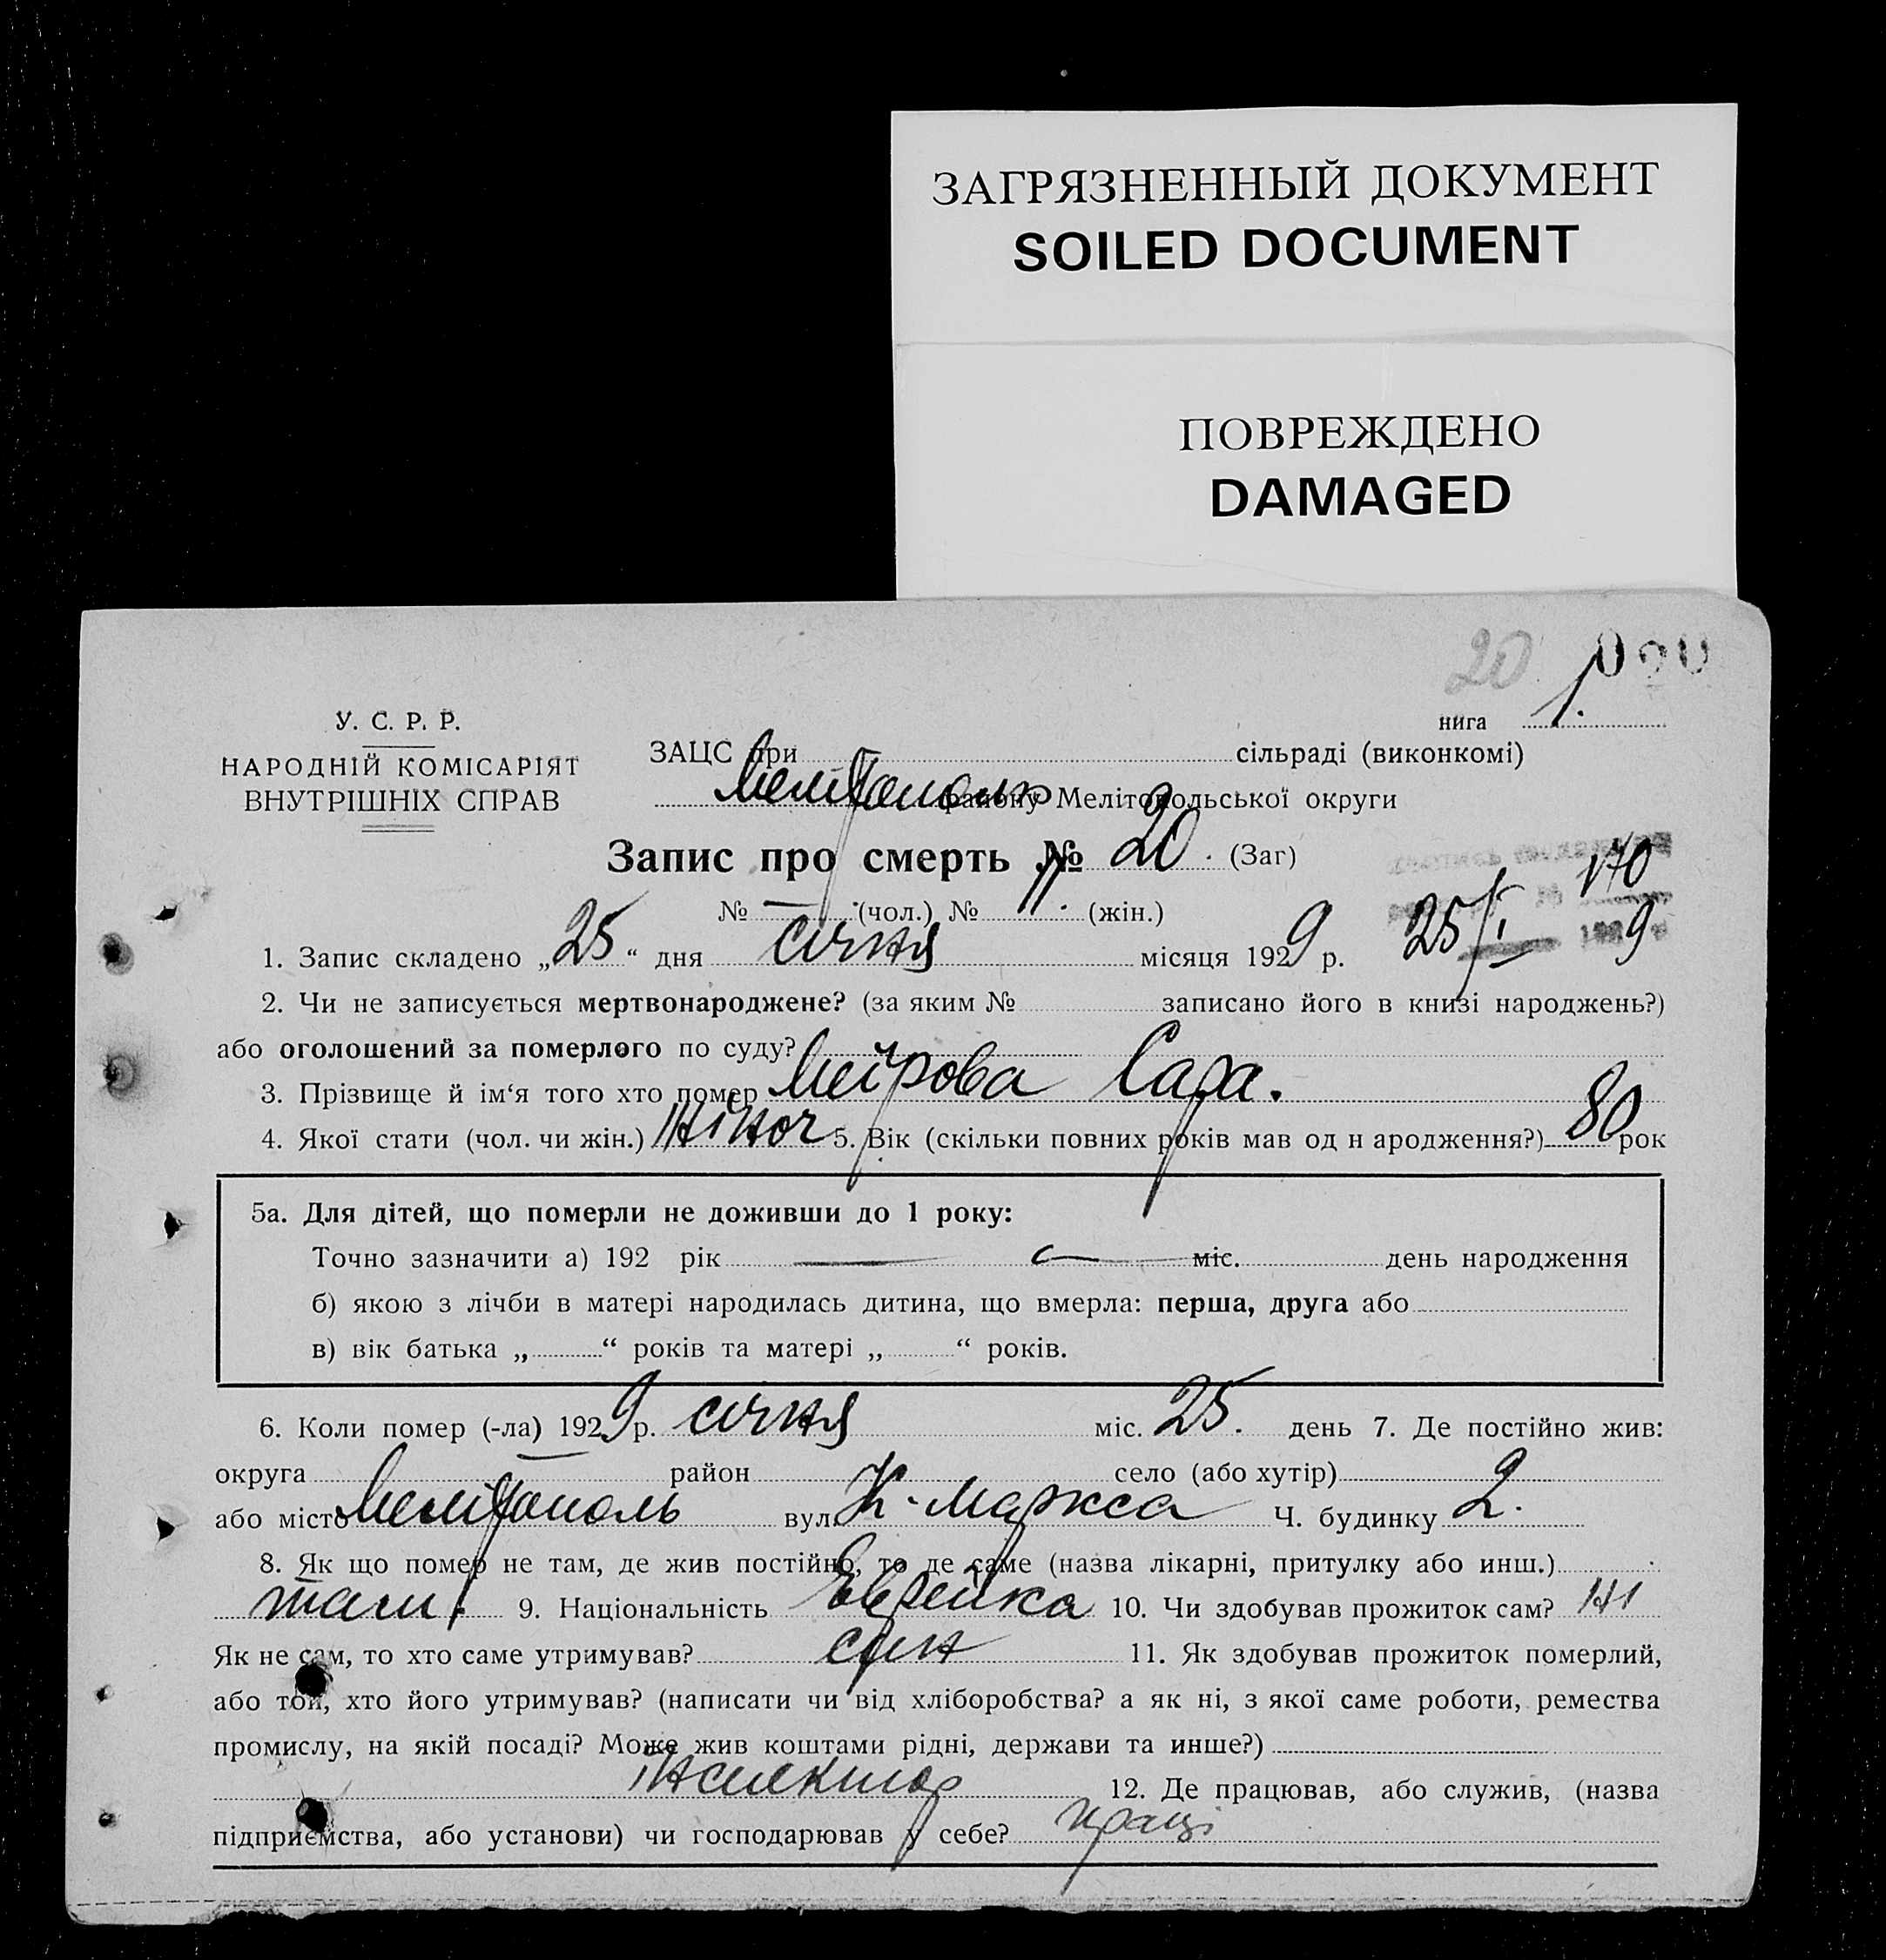 ЗАГРЯЗНЕННЫЙ ДОКУМЕНТ
SOILED DOCUMENT
ПОВРЕЖДЕНО
DAMAGED
20
У. С. Р. Р.
НАРОДНІЙ КОМІСАРІЯТ
ВНУТРІШНІХ СПРАВ
нига 1.
ЗАЦС при сільраді (виконкомі)
Мелітополь району Мелітопольської округи
Запис про смерть № 20. (Заг)
170
№ — (чол.) № 11. (жін.)
25/I 9
1. Запис складено „25“ дня січня місяця 1929 р.
2. Чи не записується мертвонароджене? (за яким № записано його в книзі народжень?)
або оголошений за померлого по суду?
3. Прізвище й ім‘я того хто помер Меірова Сара.
4. Якої стати (чол. чи жін.) жіноч 5. Вік (скільки повних років мав од н ародження?) 80 рок
5а. Для дітей, що померли не доживши до 1 року:
Точно зазначити а) 192 рік — міс. день народження
б) якою з лічби в матері народилась дитина, що вмерла: перша, друга або
в) вік батька „ “ років та матері „ “ років.
6. Коли помер (-ла) 1929 р. січня міс. 25. день 7. Де постійно жив:
округа — район село (або хутір)
або місто Мелітополь вул. К-Маркса Ч. будинку 2.
8. Як що помер не там, де жив постійно, то де саме (назва лікарні, притулку або инш.)
там. 9. Національність Єврейка 10. Чи здобував прожиток сам? ні
Як не сам, то хто саме утримував? син 11. Як здобував прожиток померлий,
або той, хто його утримував? (написати чи від хліборобства? а як ні, з якої саме роботи, ремества
промислу, на якій посаді? Може жив коштами рідні, держави та инше?)
інспектор 12. Де працював, або служив, (назва
підприємства, або установи) чи господарював у себе? праці